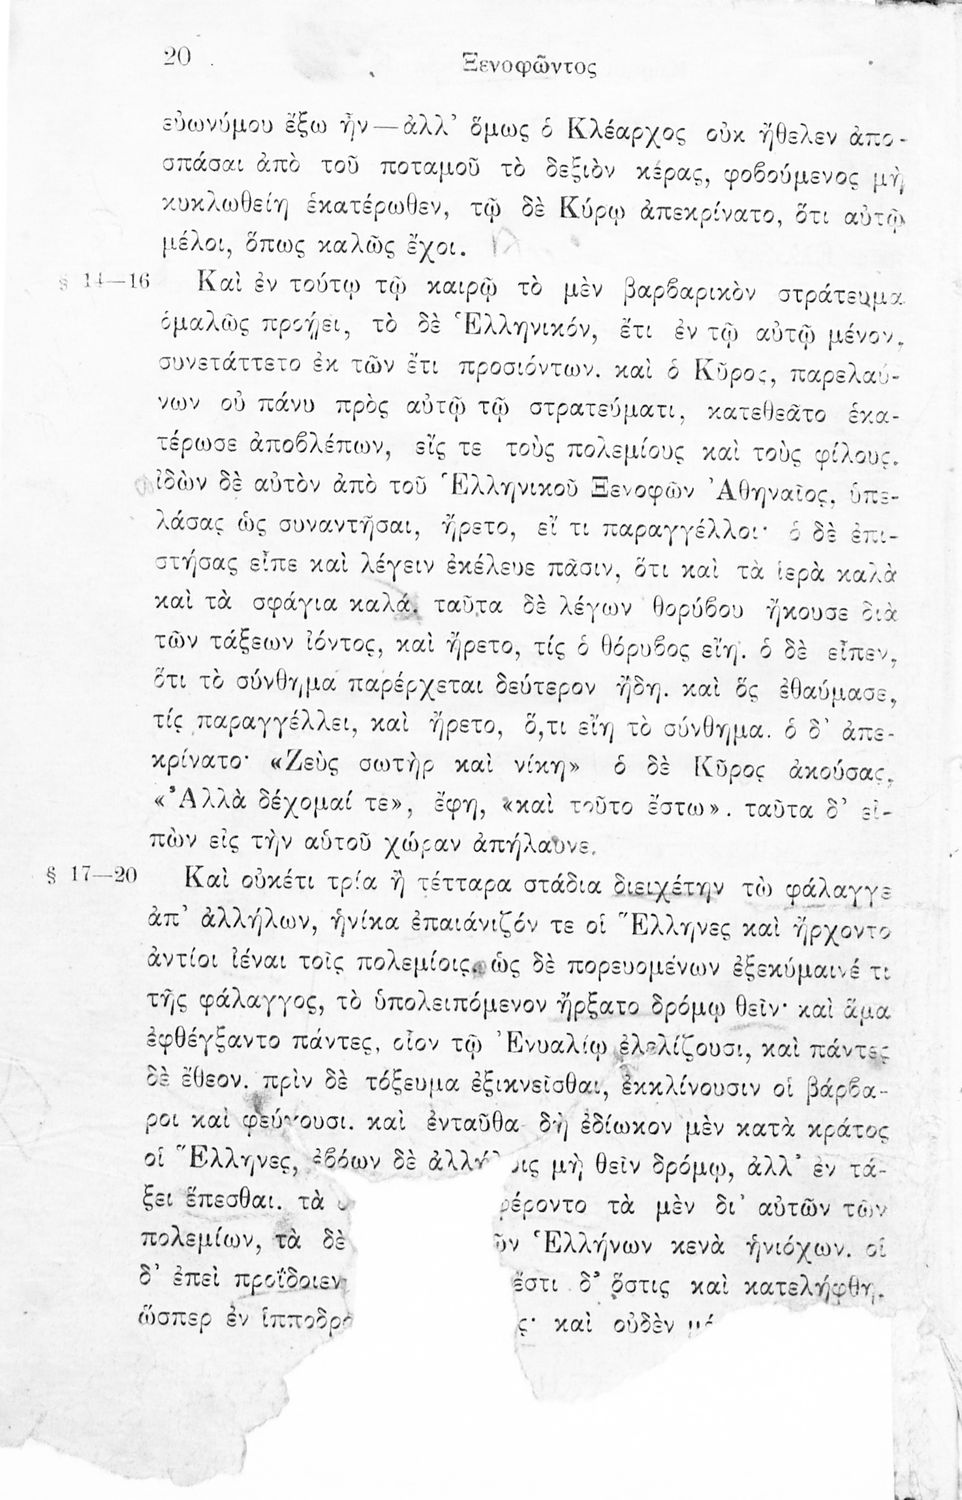 20
Ξενοφῶντος
εὐωνύμου ἔξω ἦν — ἀλλ’ ὅμως ὁ Κλέαρχος οὐκ ἤθελεν ἀπο-
σπάσαι ἀπὸ τοῦ ποταμοῦ τὸ δεξιὸν κέρας, φοβούμενος μὴ
κυκλωθείη ἑκατέρωθεν, τῷ δὲ Κύρῳ ἀπεκρίνατο, ὅτι αὐτῷ
μέλοι, ὅπως καλῶς ἔχοι.
§ 14—16 Καὶ ἐν τούτῳ τῷ καιρῷ τὸ μὲν βαρβαρικὸν στράτευμα
ὁμαλῶς προῄει, τὸ δὲ Ἑλληνικόν, ἔτι ἐν τῷ αὐτῷ μένον,
συνετάττετο ἐκ τῶν ἔτι προσιόντων. καὶ ὁ Κῦρος, παρελαύ-
νων οὐ πάνυ πρὸς αὐτῷ τῷ στρατεύματι, κατεθεᾶτο ἑκα-
τέρωσε ἀποβλέπων, εἴς τε τοὺς πολεμίους καὶ τοὺς φίλους.
ἰδὼν δὲ αὐτὸν ἀπὸ τοῦ Ἑλληνικοῦ Ξενοφῶν Ἀθηναῖος, ὑπε-
λάσας ὡς συναντῆσαι, ἤρετο, εἴ τι παραγγέλλοι· ὁ δὲ ἐπι-
στήσας εἶπε καὶ λέγειν ἐκέλευε πᾶσιν, ὅτι καὶ τὰ ἱερὰ καλὰ
καὶ τὰ σφάγια καλά. ταῦτα δὲ λέγων θορύβου ἤκουσε διὰ
τῶν τάξεων ἰόντος, καὶ ἤρετο, τίς ὁ θόρυβος εἴη. ὁ δὲ εἶπεν,
ὅτι τὸ σύνθημα παρέρχεται δεύτερον ἤδη. καὶ ὃς ἐθαύμασε,
τίς παραγγέλλει, καὶ ἤρετο, ὅ,τι εἴη τὸ σύνθημα. ὁ δ’ ἀπε-
κρίνατο· «Ζεὺς σωτὴρ καὶ νίκη» ὁ δὲ Κῦρος ἀκούσας,
«Ἀλλὰ δέχομαί τε», ἔφη, «καὶ τοῦτο ἔστω». ταῦτα δ’ εἰ-
πὼν εἰς τὴν αὑτοῦ χώραν ἀπήλαυνε.
§ 17—20 Καὶ οὐκέτι τρία ἢ τέτταρα στάδια διειχέτην τὼ φάλαγγε
ἀπ’ ἀλλήλων, ἡνίκα ἐπαιάνιζόν τε οἱ Ἕλληνες καὶ ἤρχοντο
ἀντίοι ἰέναι τοῖς πολεμίοις. ὡς δὲ πορευομένων ἐξεκύμαινέ τι
τῆς φάλαγγος, τὸ ὑπολειπόμενον ἤρξατο δρόμῳ θεῖν· καὶ ἅμα
ἐφθέγξαντο πάντες, οἷον τῷ Ἐνυαλίῳ ἐλελίζουσι, καὶ πάντες
δὲ ἔθεον. πρὶν δὲ τόξευμα ἐξικνεῖσθαι, ἐκκλίνουσιν οἱ βάρβα-
ροι καὶ φεύγουσι. καὶ ἐνταῦθα δὴ ἐδίωκον μὲν κατὰ κράτος
οἱ Ἕλληνες, ἐβόων δὲ ἀλλήλοις μὴ θεῖν δρόμῳ, ἀλλ’ ἐν τά-
ξει ἕπεσθαι. τὰ φέροντο τὰ μὲν δι’ αὐτῶν τῶν
πολεμίων, τὰ δὲ Ἑλλήνων κενὰ ἡνιόχων. οἱ
δ’ ἐπεὶ προΐδοιεν ἔστι δ’ ὅστις καὶ κατελήφθη,
ὥσπερ ἐν καὶ οὐδὲν